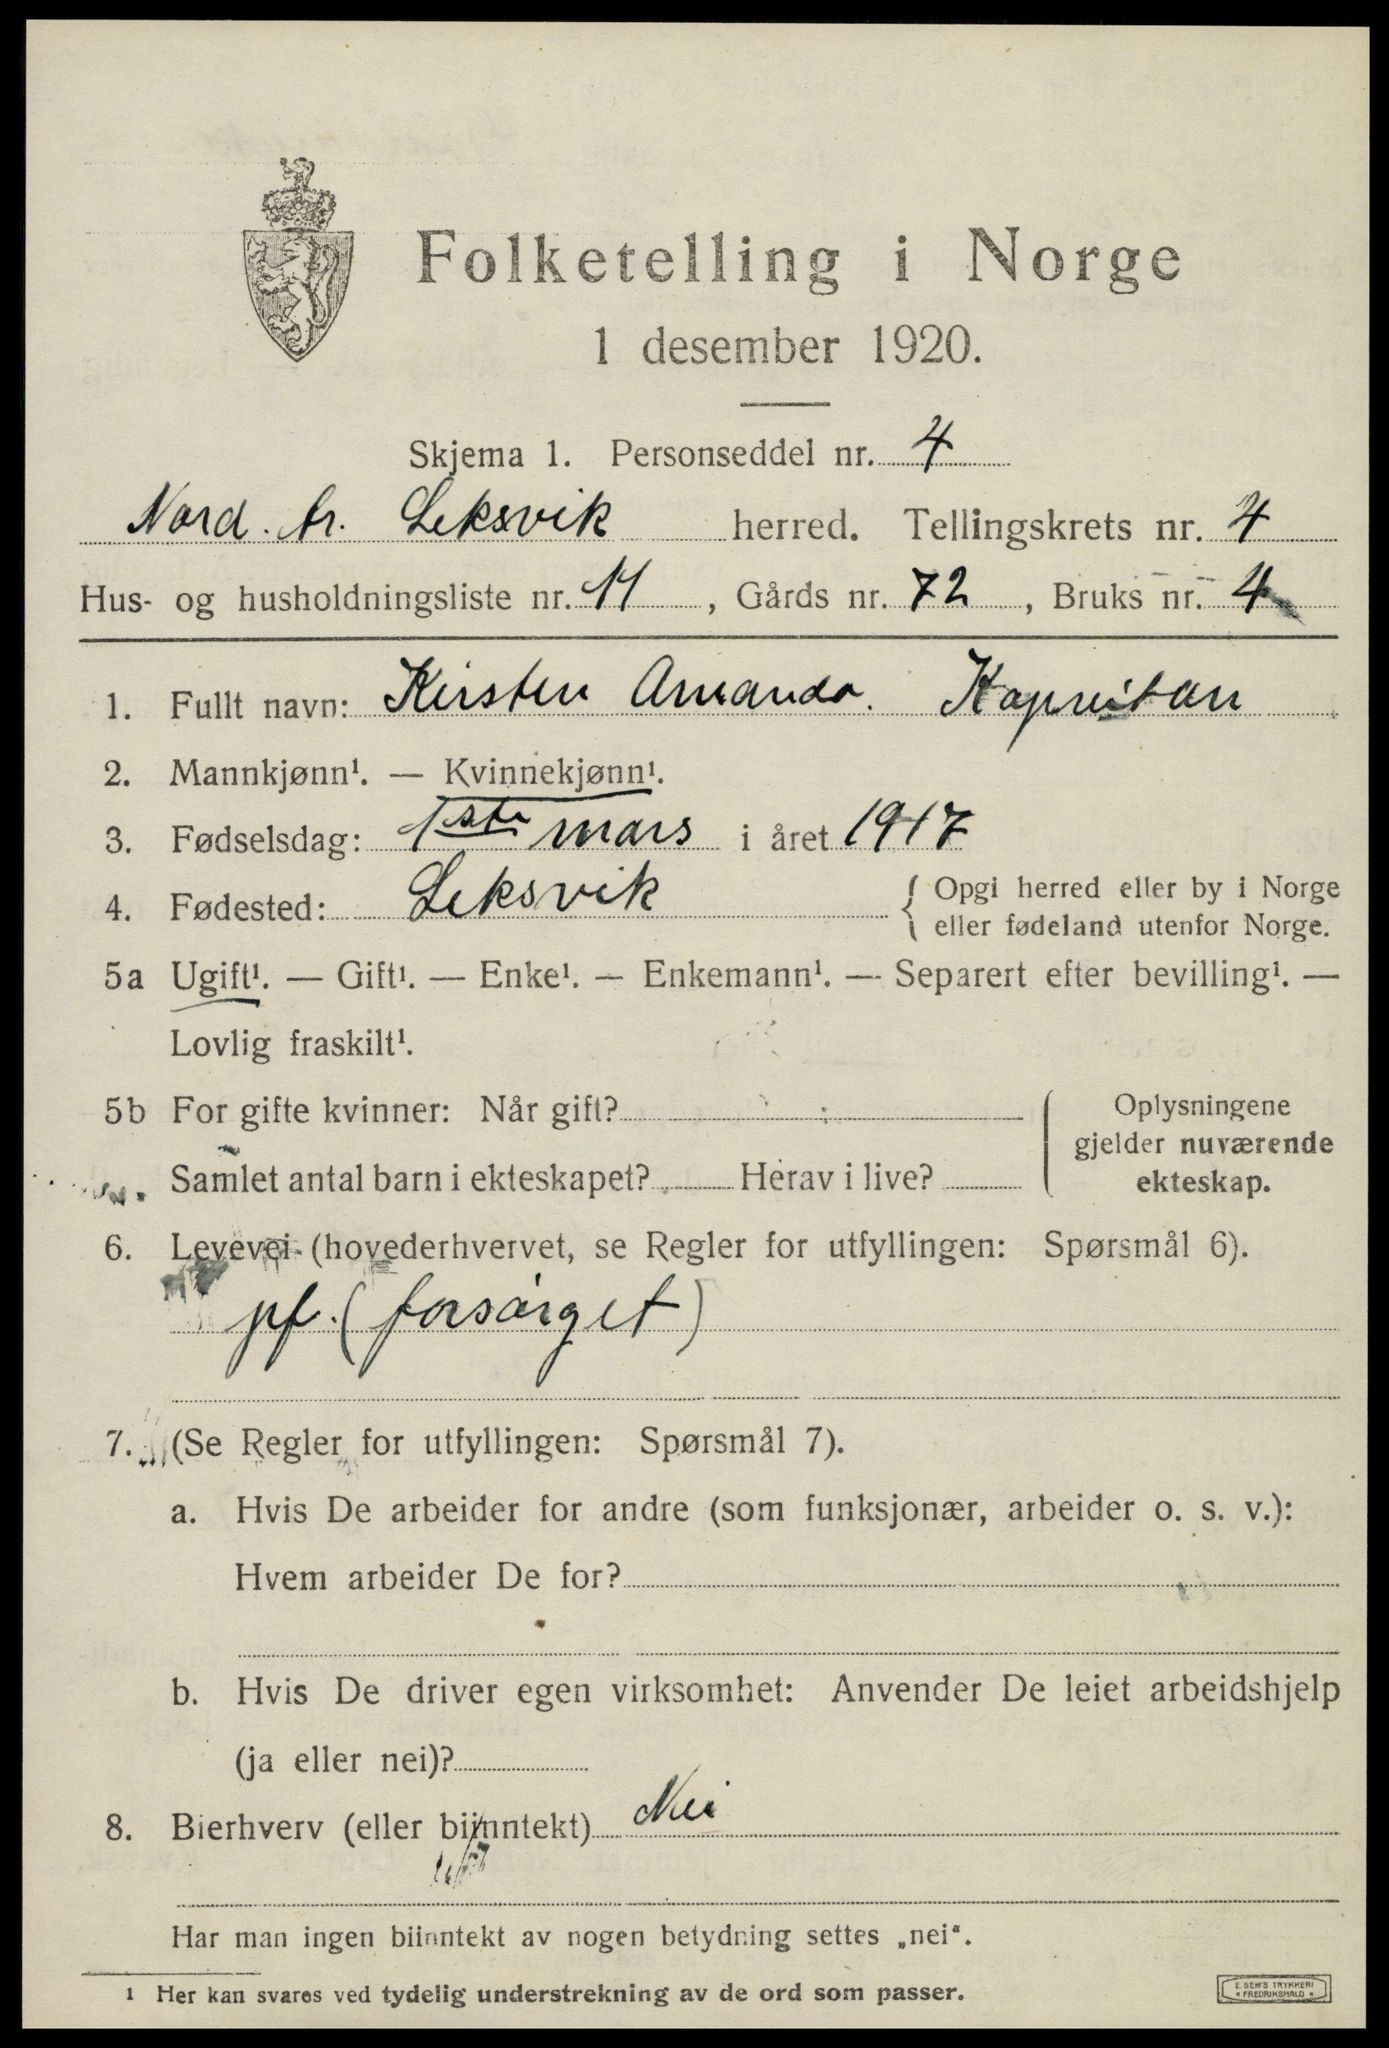 Folketelling i Norge
1 desember 1920.
Skjema 1. Personseddel nr. 4
Nord. tr. Leksvik herred. Tellingskrets nr. 4
Hus- og husholdningsliste nr. 11, Gårds nr. 72, Bruks nr. 4
1. Fullt navn: Kirsten Amanda.
2. Mannkjønn¹. — Kvinnekjønn¹.
3. Fødselsdag: 1ste mars i året 1917
4. Fødested: Leksvik { Opgi herred eller by i Norge
eller fødeland utenfor Norge.
5a Ugift¹. — Gift¹. — Enke¹. — Enkemann¹. — Separert efter bevilling¹. —
Lovlig fraskilt¹.
5b For gifte kvinner: Når gift?
Samlet antal barn i ekteskapet? Herav i live?
Oplysningene
gjelder nuværende
ekteskap.
6. Levevei (hovederhvervet, se Regler for utfyllingen: Spørsmål 6).
pf. (forsørget)
7. (Se Regler for utfyllingen: Spørsmål 7).
a. Hvis De arbeider for andre (som funksjonær, arbeider o. s. v.):
Hvem arbeider De for?
b. Hvis De driver egen virksomhet: Anvender De leiet arbeidshjelp
(ja eller nei)?
8. Bierhverv (eller biinntekt) Nei
Har man ingen biinntekt av nogen betydning settes „nei“.
1 Her kan svares ved tydelig understrekning av de ord som passer.
E. SEM'S TRYKKERI
FREDRIKSHALD